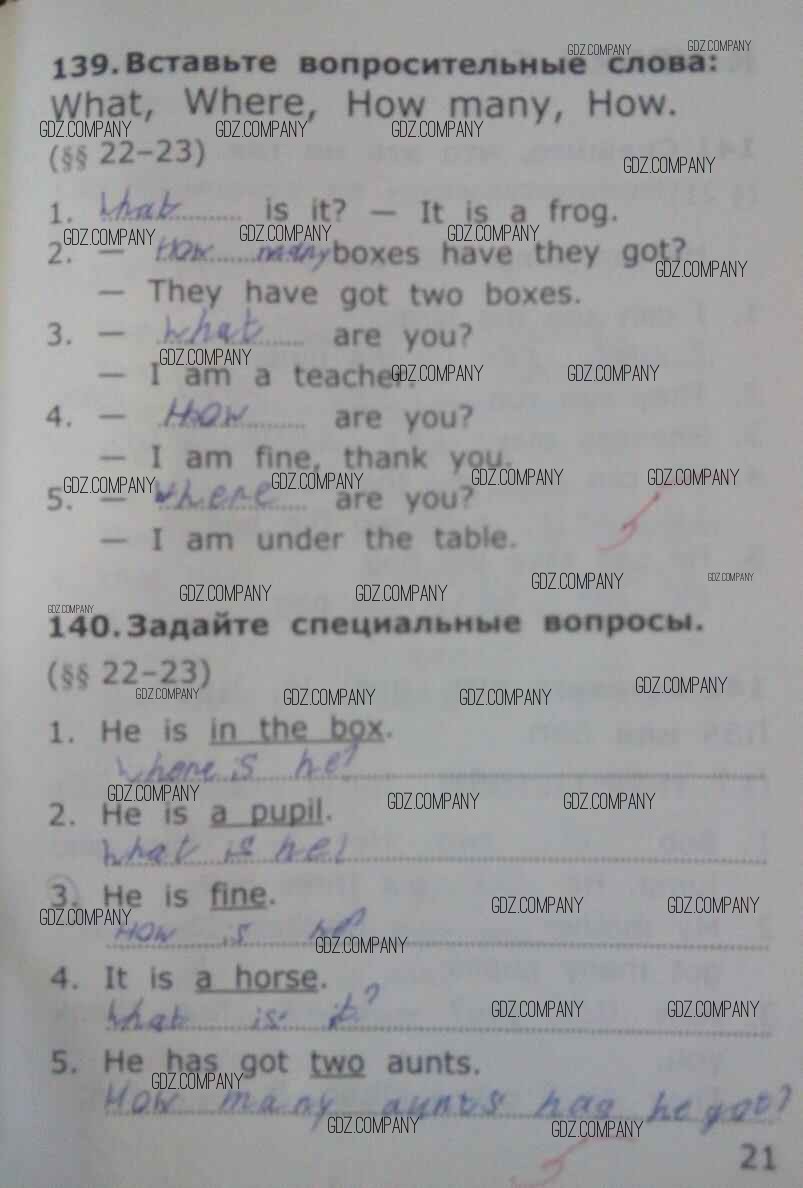 139. Вставьте вопросительные слова:
What, Where, How many, How.
(§§ 22–23)
1. What is it? — It is a frog.
2. — How many boxes have they got?
— They have got two boxes.
3. — What are you?
— I am a teacher.
4. — How are you?
— I am fine, thank you.
5. — Where are you?
— I am under the table.
5
140. Задайте специальные вопросы.
(§§ 22–23)
1. He is in the box.
Where is he?
2. He is a pupil.
What is he?
3. He is fine.
How is he?
4. It is a horse.
What is it?
5. He has got two aunts.
How many aunts has he got?
5
21
GDZ.COMPANY